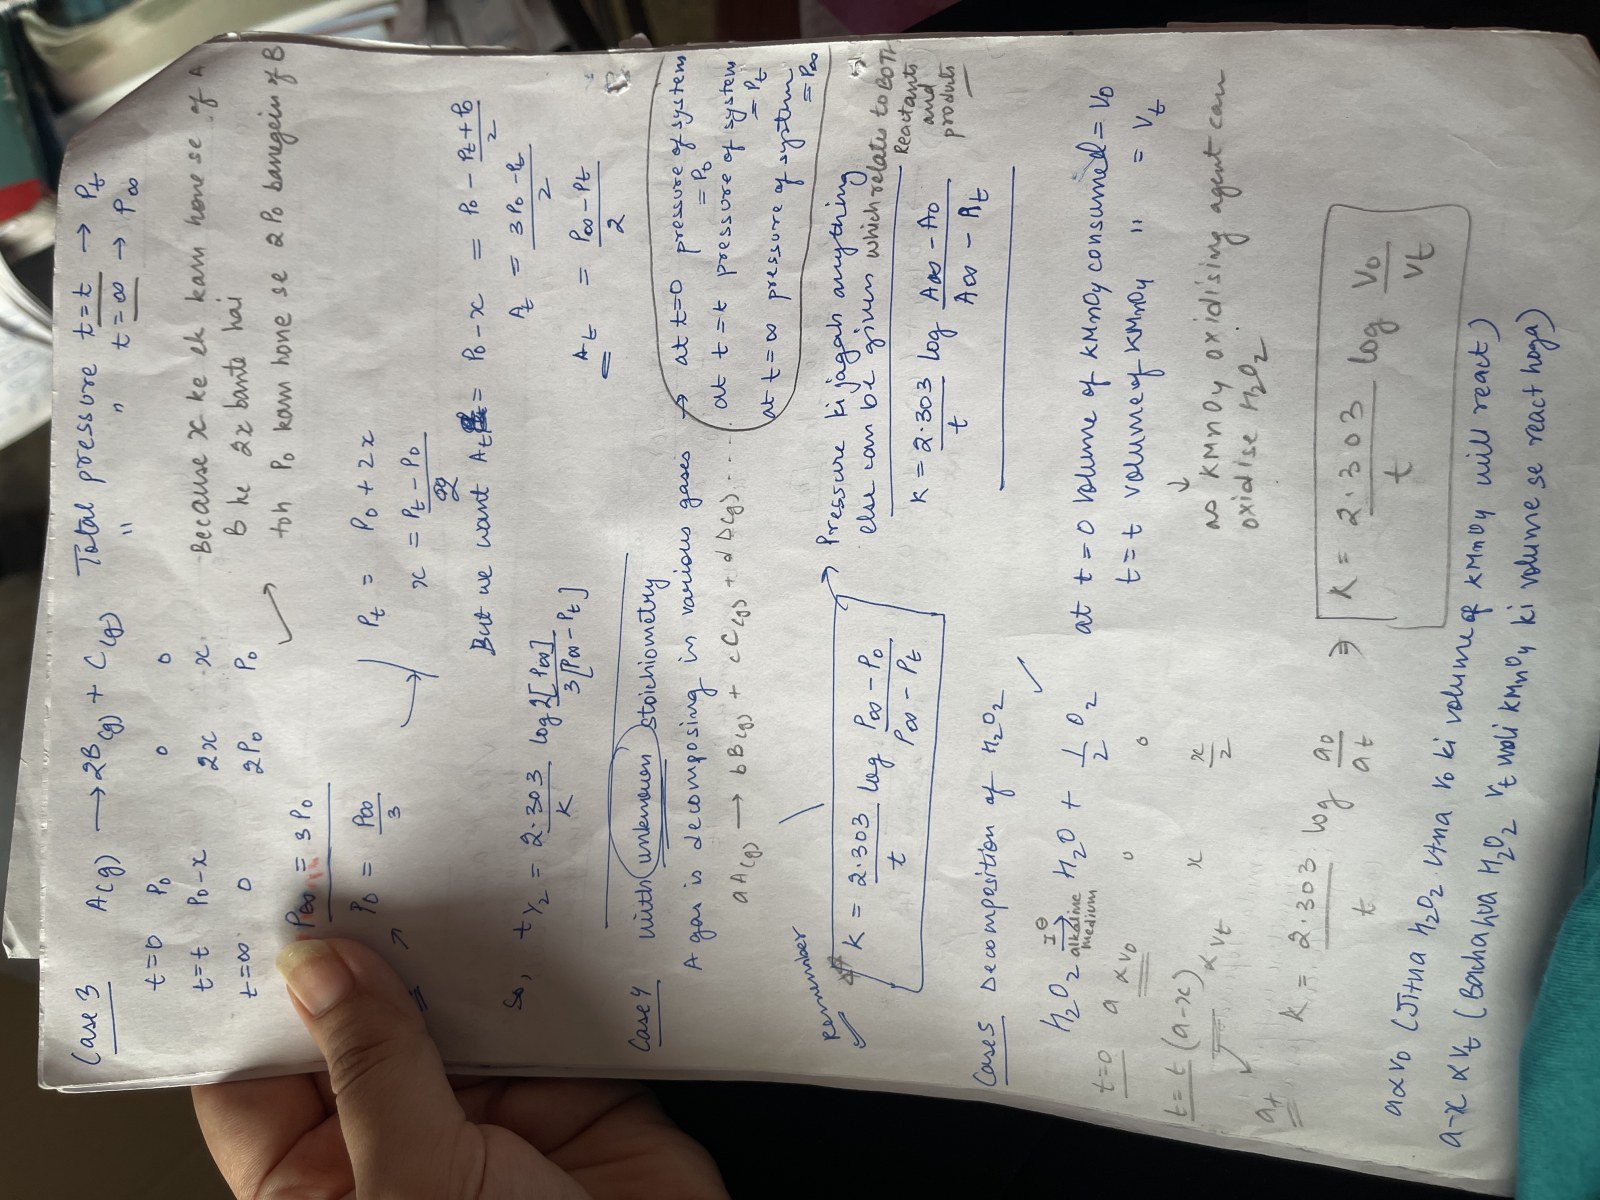 Case 3 A(g) → 2B(g) + C(g) Total pressure t=t → Pt
" " t=∞ → P∞
t=0 P0 0 0
t=t P0-x 2x x
t=∞ 0 2P0 P0
Because x ke ek kam hone se of A
B ke 2x bante hai
toh P0 kam hone se 2P0 banegein of B
P∞ = 3P0
P0 = P∞/3
Pt = P0 + 2x
x = Pt - P0/2
But we want At = P0 - x = P0 - Pt + P0/2
At = 3P0 - Pt/2
At = P∞ - Pt/2
So, t1/2 = 2.303/K log 2[P∞]/3[P∞ - Pt]
Case 4 with unknown stoichiometry
A gas is decomposing in various gases → at t=0 pressure of system = P0
at t=t pressure of system = Pt
at t=∞ pressure of system = P∞
aA(g) → bB(g) + cC(g) + dD(g)....
Remember
K = 2.303/t log P∞ - P0/P∞ - Pt
→ Pressure ki jagah anything
else can be given which relates to BOTH
Reactants
and
products
K = 2.303/t log A∞ - A0/A∞ - At
Case 5 Decomposition of H2O2
H2O2 I⊖→ alkaline medium H2O + 1/2 O2
t=0 a ∝V0 0 0
t=t (a-x) ∝Vt x x/2
at
at t=0 volume of KMnO4 consumed = V0
t=t volume of KMnO4 " = Vt
↓
as KMnO4 oxidising agent can
oxidise H2O2
K = 2.303/t log a0/at ⇒ K = 2.303/t log V0/Vt
a∝V0 (Jitna H2O2 utna V0 ki volume of KMnO4 will react)
a-x ∝ Vt (Bacha hua H2O2 Vt wali KMnO4 ki volume se react hoga)